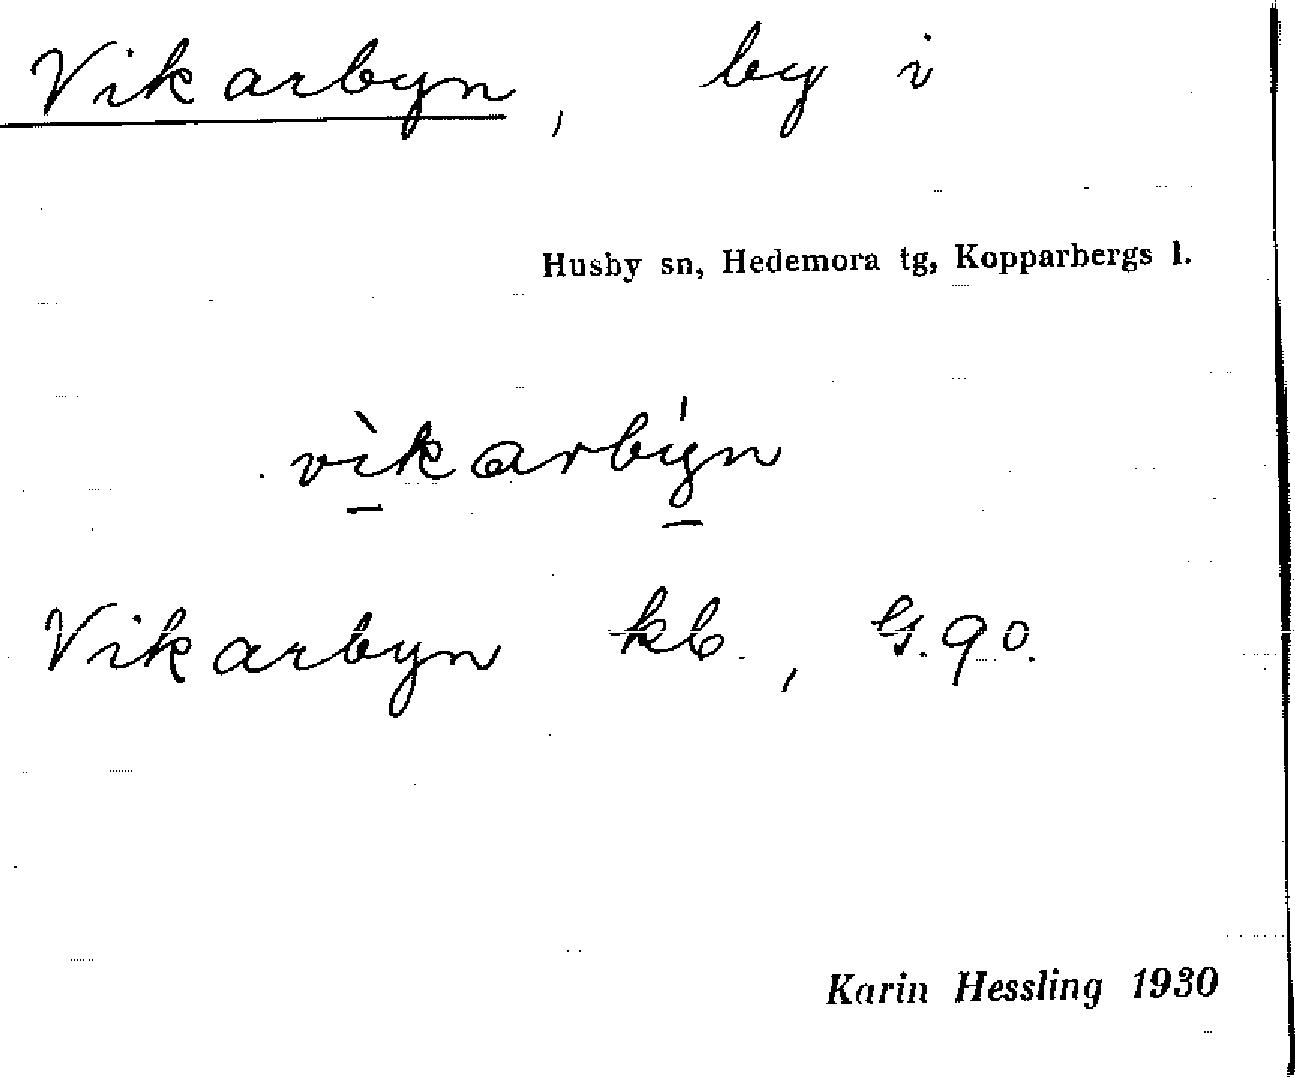 Vikarbyn, by i
Husby sn, Hedemora tg, Kopparbergs l.
vìkarbýn
Vikarbyn kb., G.90.
Karin Hessling 1930